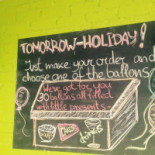 TOMORROW-HOLIDAY!
Just make your order and
choose one of the ballons
We've got for you
30 ballons all filled
with little presents-
drinks